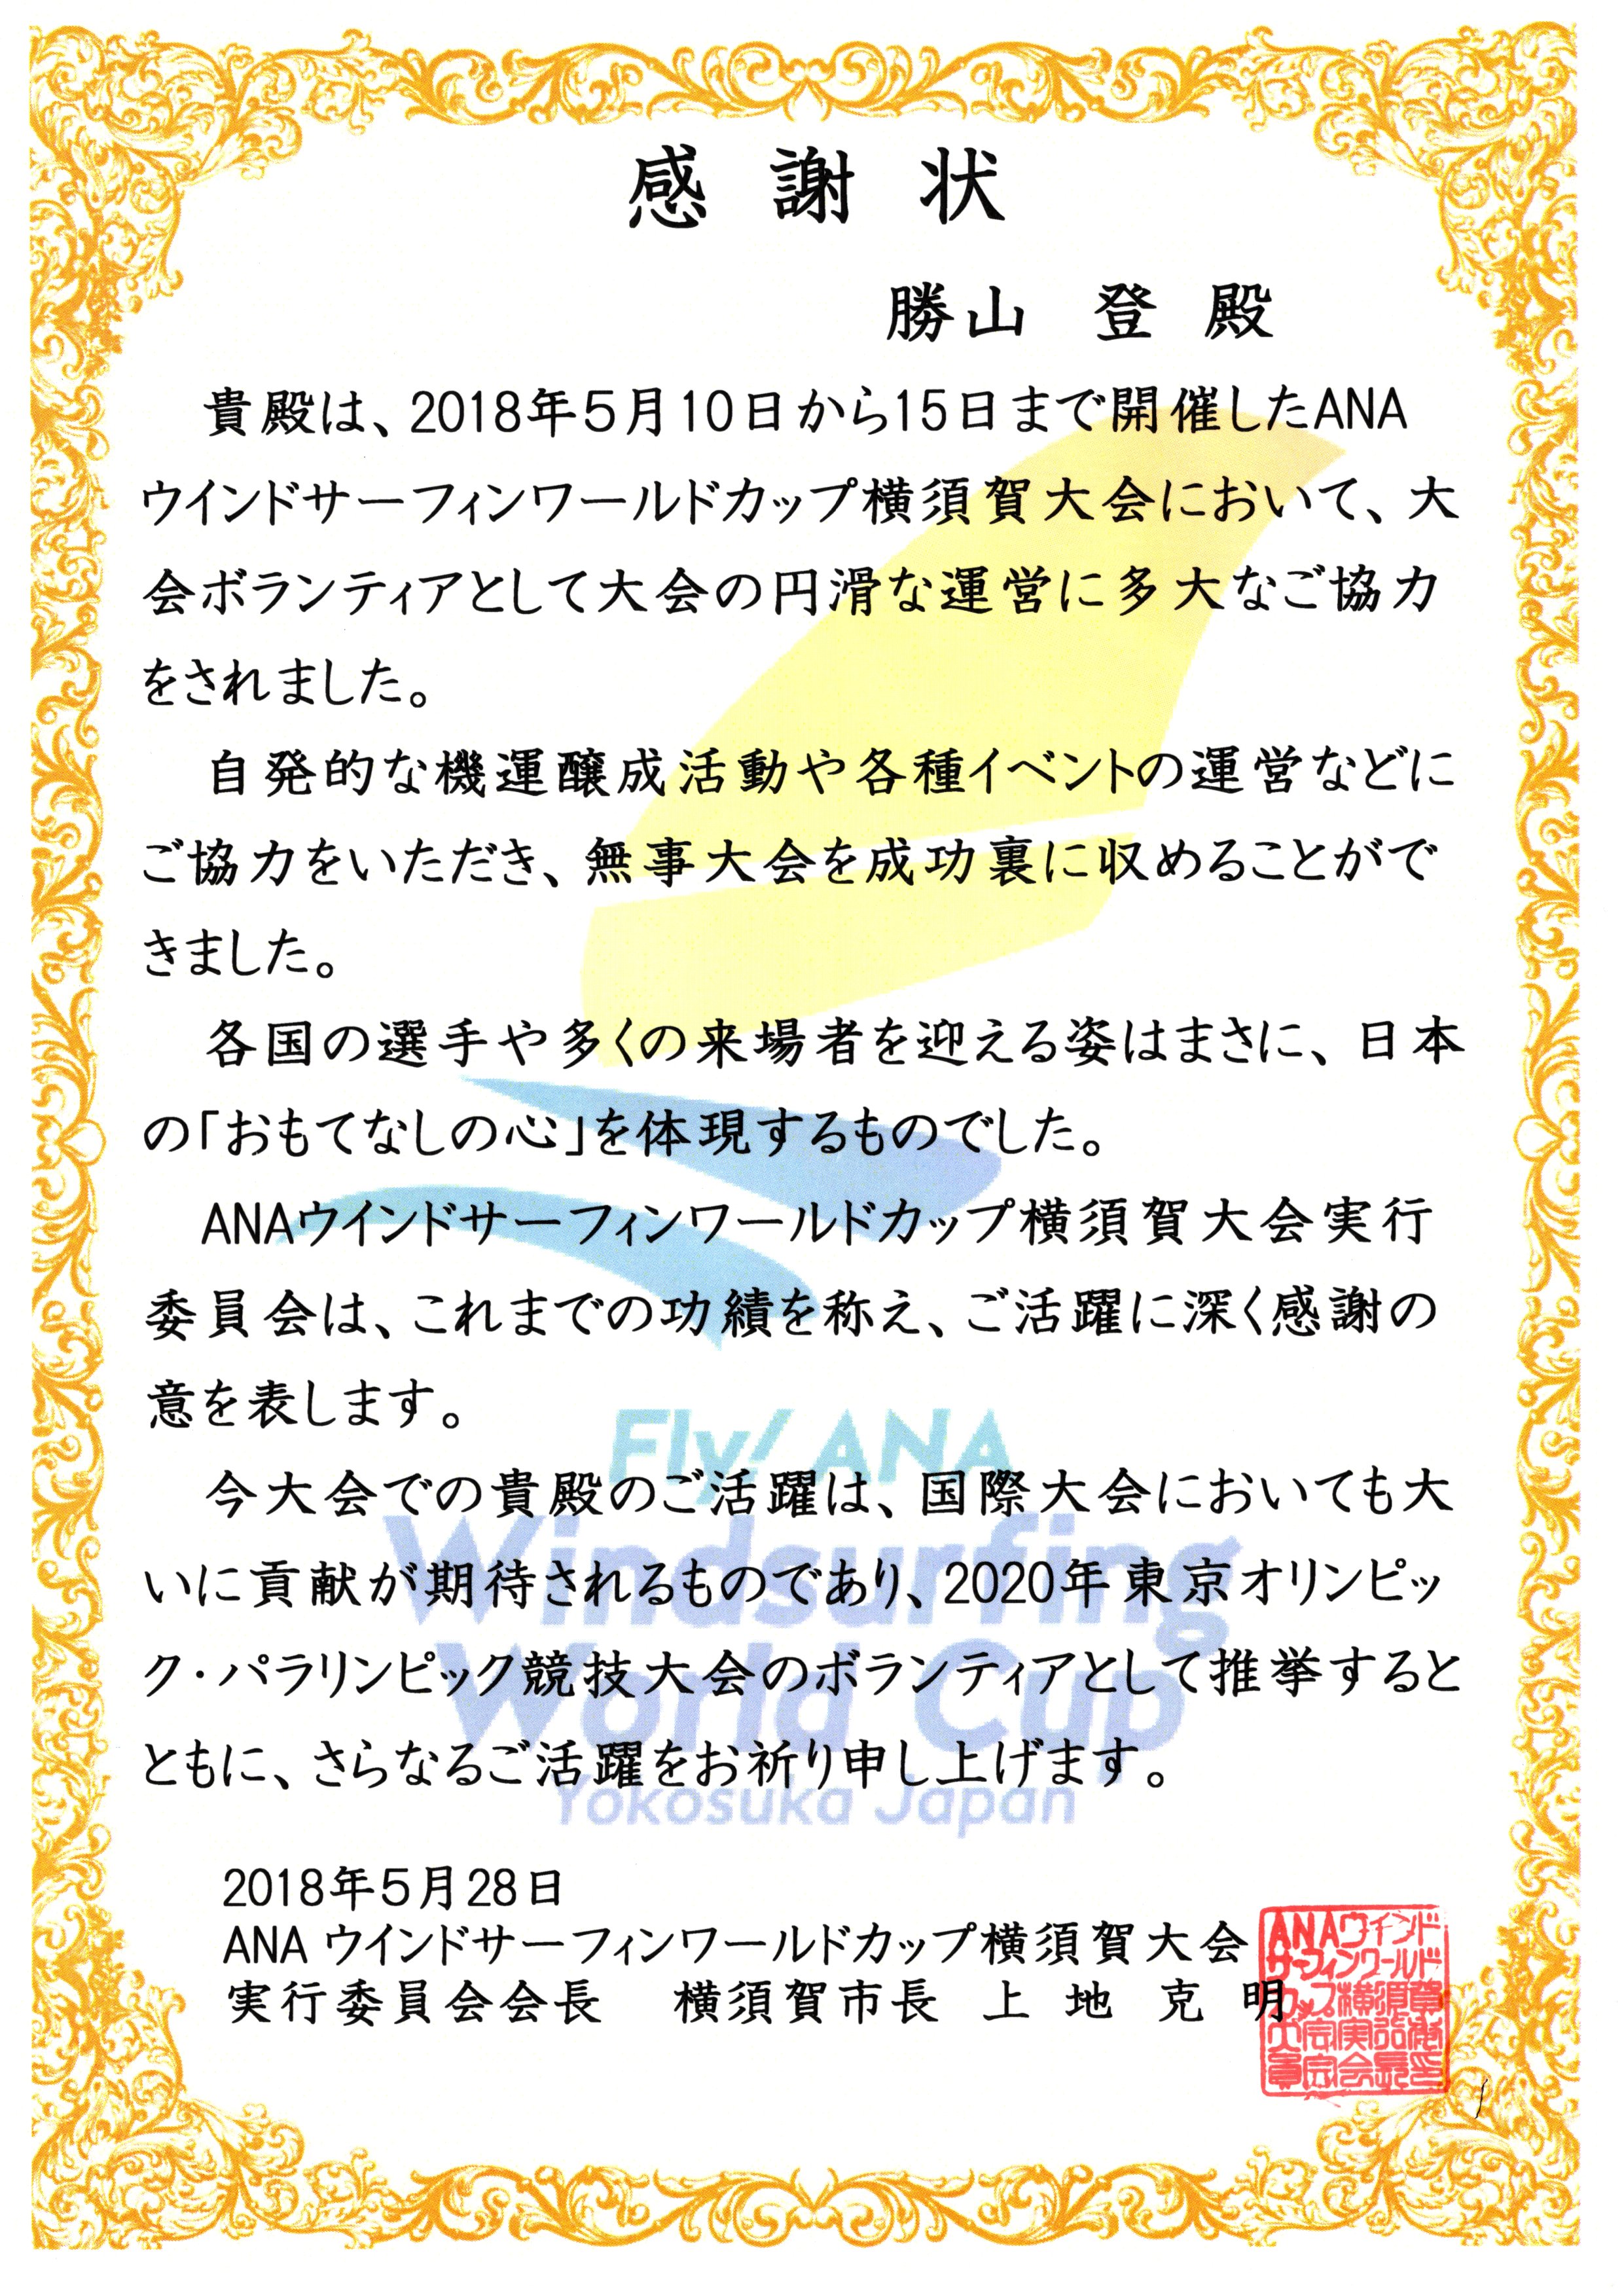 感謝状
勝山 登 殿
貴殿は、2018年5月10日から15日まで開催したANA
ウインドサーフィンワールドカップ横須賀大会において、大
会ボランティアとして大会の円滑な運営に多大なご協力
をされました。
自発的な機運醸成活動や各種イベントの運営などに
ご協力をいただき、無事大会を成功裏に収めることがで
きました。
各国の選手や多くの来場者を迎える姿はまさに、日本
の「おもてなしの心」を体現するものでした。
ANAウインドサーフィンワールドカップ横須賀大会実行
委員会は、これまでの功績を称え、ご活躍に深く感謝の
意を表します。
Fly! ANA
今大会での貴殿のご活躍は、国際大会においても大
Windsurfing
いに貢献が期待されるものであり、2020年東京オリンピッ
World Cup
ク・パラリンピック競技大会のボランティアとして推挙すると
ともに、さらなるご活躍をお祈り申し上げます。
Yokosuka Japan
2018年5月28日
ANA ウインドサーフィンワールドカップ横須賀大会
実行委員会会長 横須賀市長 上 地 克 明
ANAウインド
サーフィンワールド
カップ横須賀